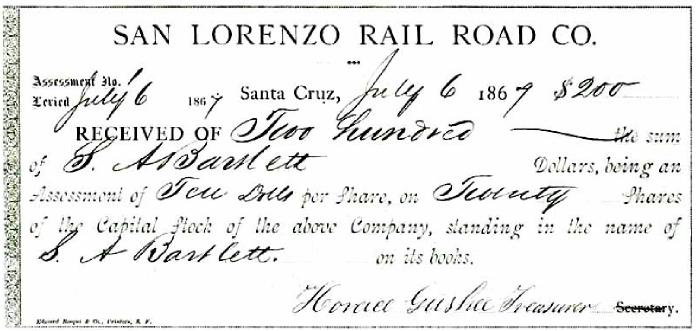 SAN LORENZO RAIL ROAD CO.
Assessment No. 1
Levied July 6 1867 Santa Cruz, July 6 1867 $200
RECEIVED OF Two hundred the sum
of S. A Bartlett Dollars, being an
Assessment of Ten Dolls per Share, on Twenty Shares
of the Capital Stock of the above Company, standing in the name of
S. A Bartlett. on its books.
Horace Gushee Treasurer Secretary.
Edward Bosqui & Co., Printers, S. F.